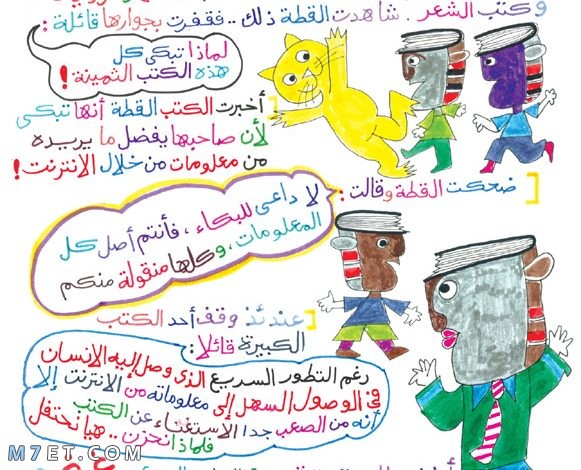 وكتب الشعر . شاهدت القطة ذلك .. فقفزت بجوارها قائلة :
لماذا تبكى كل
هذه الكتب الثمينة !
أخبرت الكتب القطة أنها تبكى
لأن صاحبها يفضل ما يريده
من معلومات من خلال الانترنت !
ضحكت القطة وقالت :
لا داعى للبكاء ، فأنتم أصل كل
المعلومات ، وكلها منقولة منكم
عندئذ وقف أحد الكتب
الكبيرة قائلا :
رغم التطور السريع الذى وصل إليه الانسان
فى الوصول السهل إلى معلوماته من الانترنت إلا
أنه من الصعب جدا الاستغناء عن الكتب
فلماذا نحزن .. هيا نحتفل
M7ET.COM